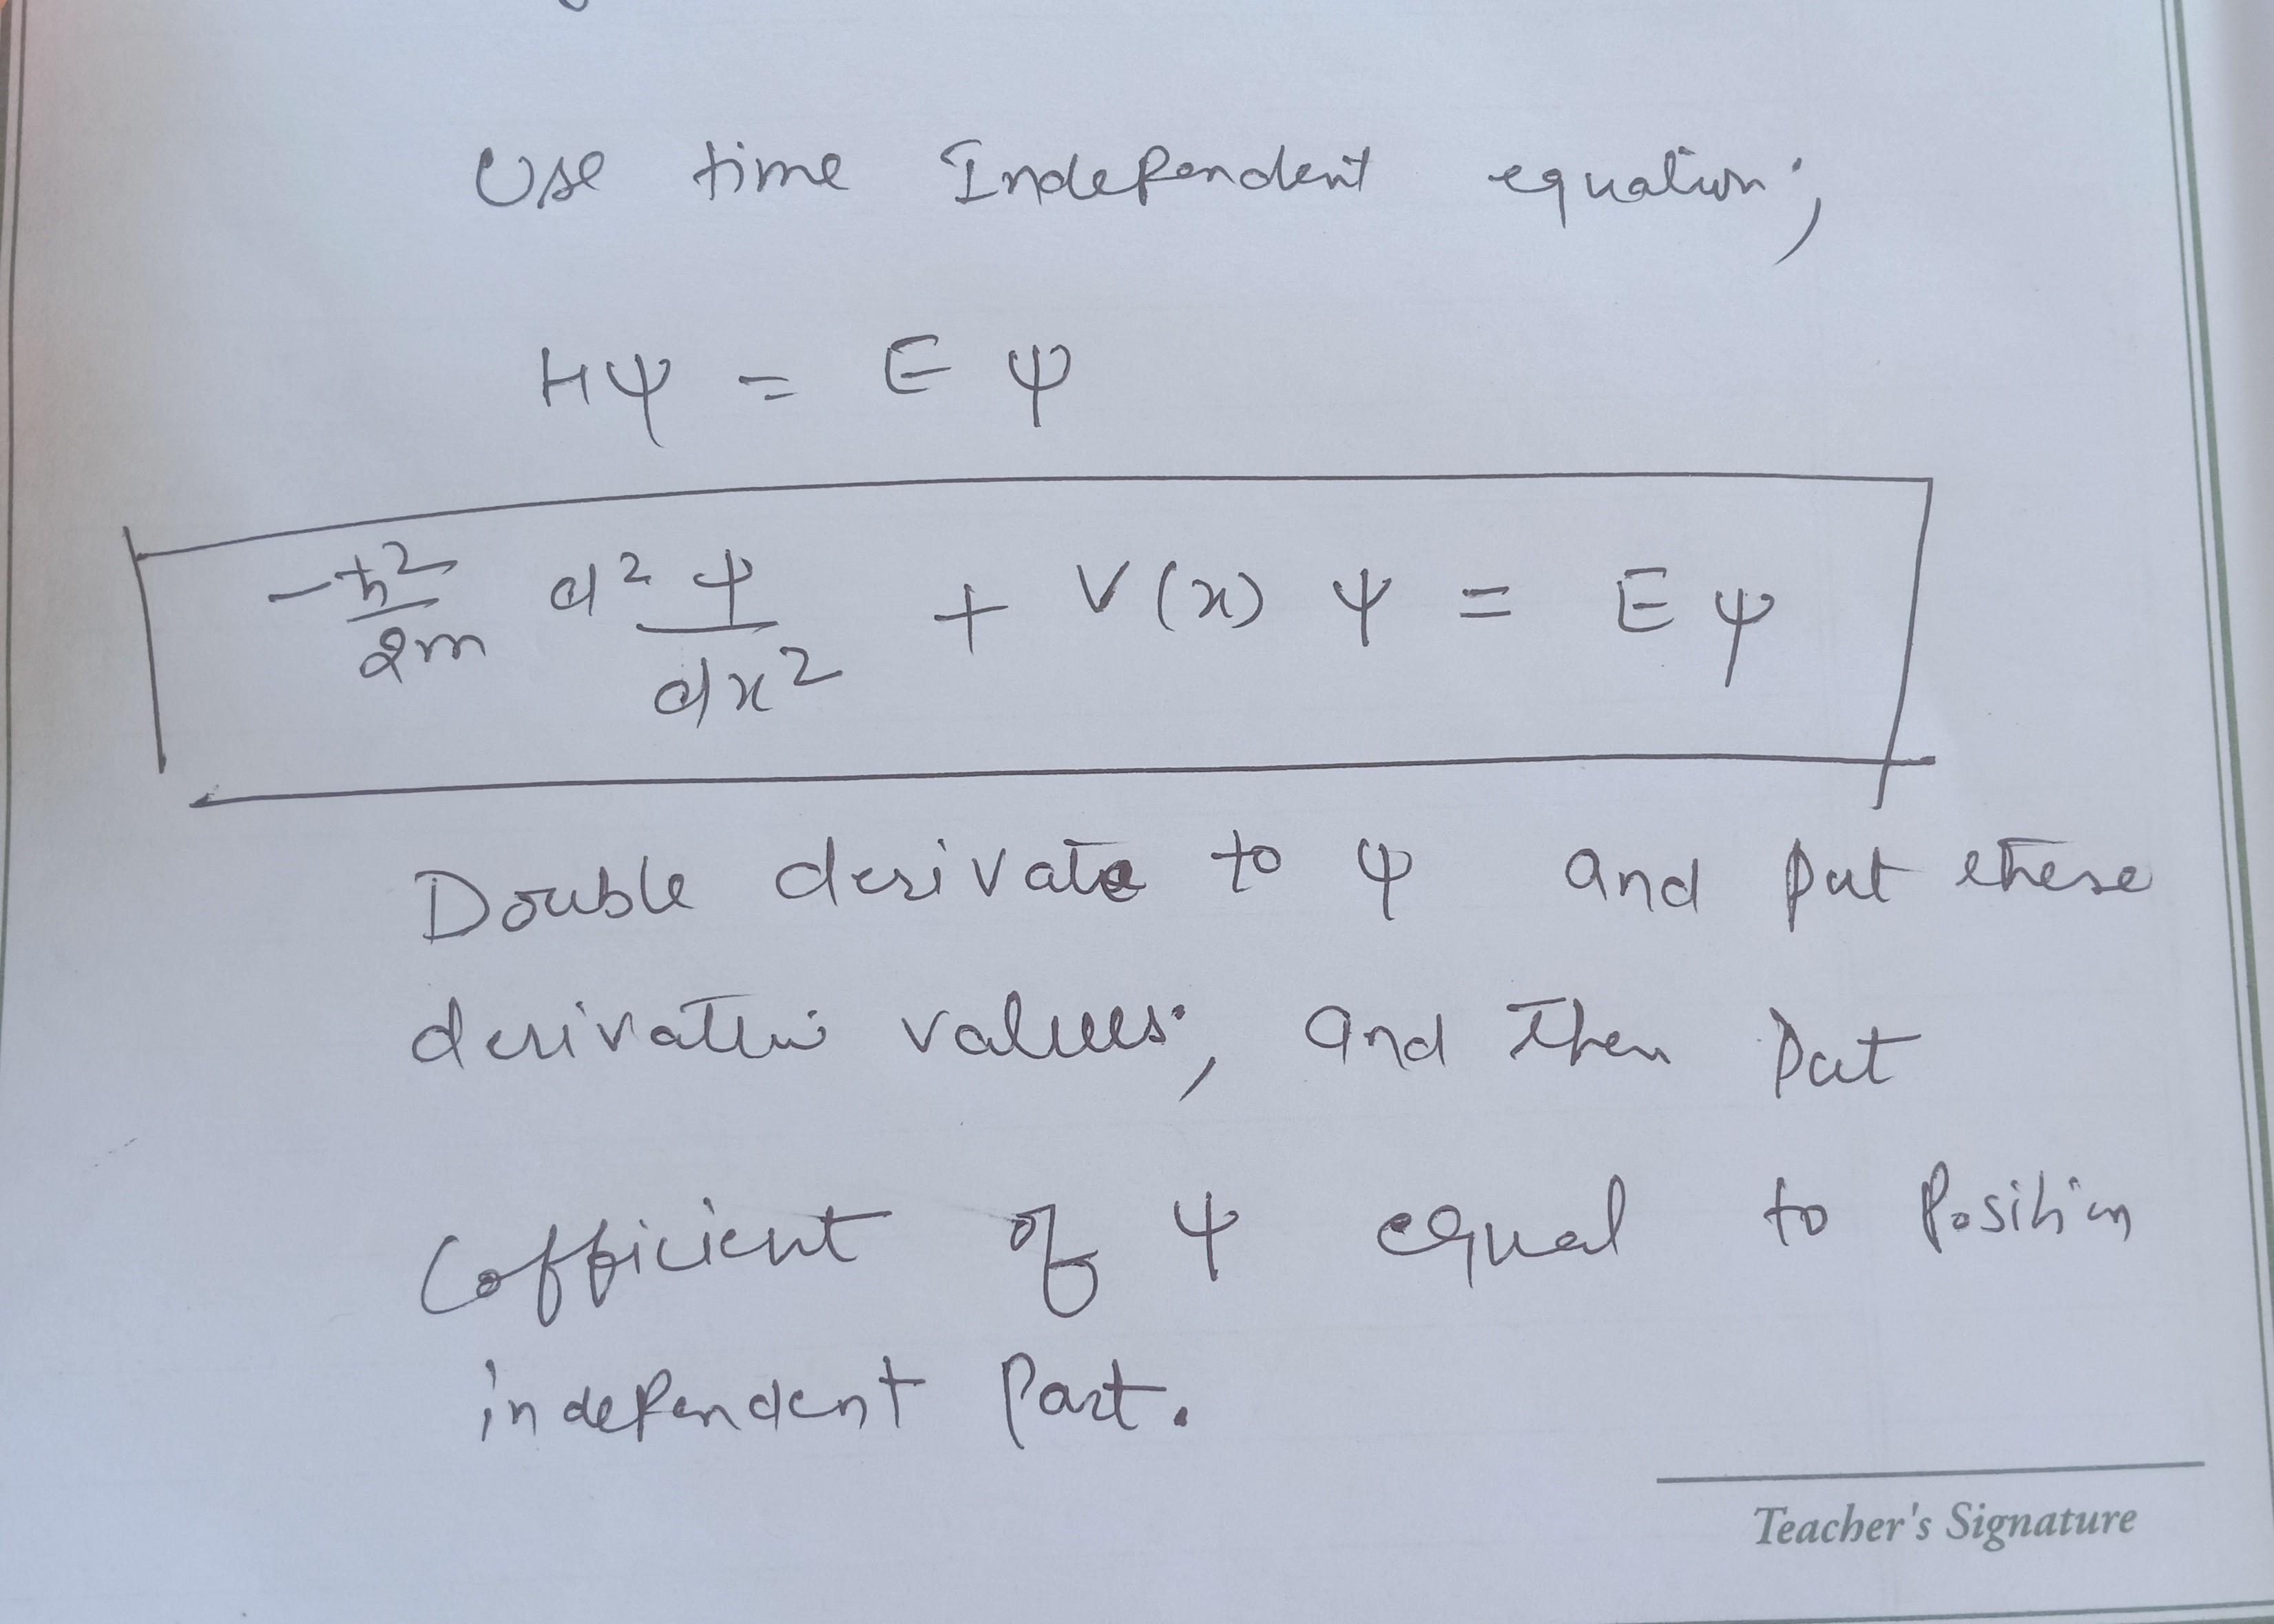 Use time Independent equation;
Hψ = E ψ
-ħ²/2m d²ψ/dx² + V(x) ψ = E ψ
Double derivate to ψ and put these
derivative values, and then put
Cofficient of ψ equal to Position
independent Part.
Teacher's Signature